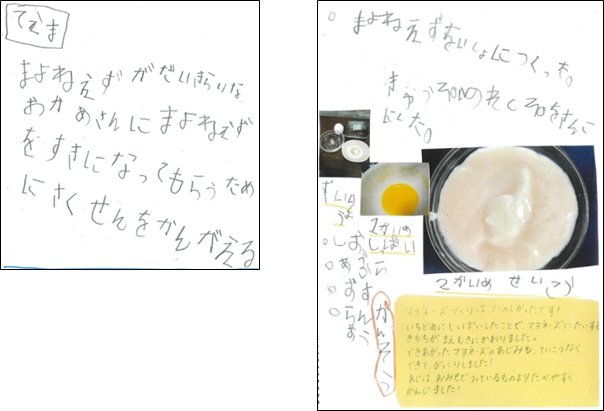 てえま
まよねえずがだいきらいな
おかあさんにまよねえず
をすきになってもらうため
にさくせんをかんがえる
まよねえずをいっしょにつくった。
にした。
ざいりょう
しお
あぶら
す
らんおう
1かいめ
しっぱい
2かいめ せいこう
かんそう
マヨネーズづくりは、たのしかったです!
いちどめにしっぱいしたことで、マヨネーズにたいする
きもちが まえむきにかわりました。
できあがったマヨネーズのあじみも、ていこうなく
できて、びっくりしました!
あじは、おみせでうっているものよりたべやすく
かんじました!